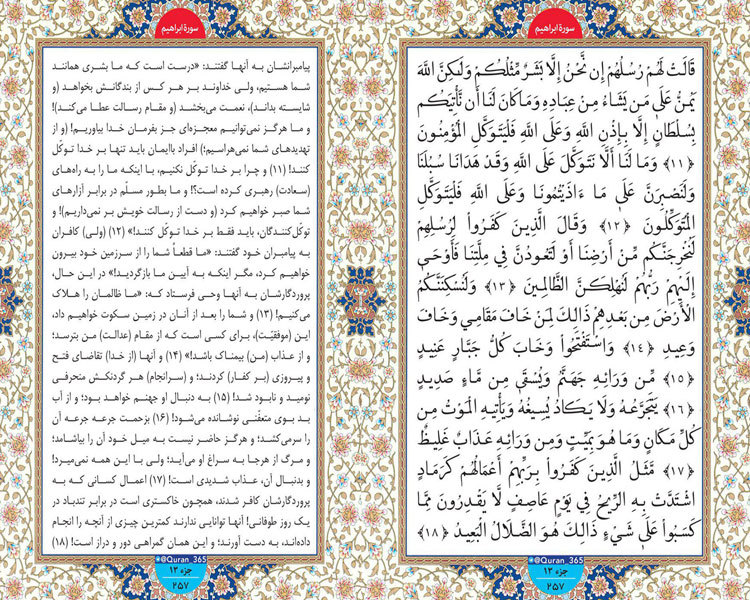 سورهٔ ابراهیم
قَالَتْ لَهُمْ رُسُلُهُمْ إِن نَّحْنُ إِلَّا بَشَرٌ مِّثْلُكُمْ وَلَٰكِنَّ اللَّهَ
يَمُنُّ عَلَىٰ مَن يَشَاءُ مِنْ عِبَادِهِ وَمَا كَانَ لَنَا أَن نَّأْتِيَكُم
بِسُلْطَانٍ إِلَّا بِإِذْنِ اللَّهِ وَعَلَى اللَّهِ فَلْيَتَوَكَّلِ الْمُؤْمِنُونَ
﴿١١﴾ وَمَا لَنَا أَلَّا نَتَوَكَّلَ عَلَى اللَّهِ وَقَدْ هَدَانَا سُبُلَنَا
وَلَنَصْبِرَنَّ عَلَىٰ مَا ءَاذَيْتُمُونَا وَعَلَى اللَّهِ فَلْيَتَوَكَّلِ
الْمُتَوَكِّلُونَ ﴿١٢﴾ وَقَالَ الَّذِينَ كَفَرُوا لِرُسُلِهِمْ
لَنُخْرِجَنَّكُم مِّنْ أَرْضِنَا أَوْ لَتَعُودُنَّ فِي مِلَّتِنَا فَأَوْحَىٰ
إِلَيْهِمْ رَبُّهُمْ لَنُهْلِكَنَّ الظَّالِمِينَ ﴿١٣﴾ وَلَنُسْكِنَنَّكُمُ
الْأَرْضَ مِن بَعْدِهِمْ ذَٰلِكَ لِمَنْ خَافَ مَقَامِي وَخَافَ
وَعِيدِ ﴿١٤﴾ وَاسْتَفْتَحُوا وَخَابَ كُلُّ جَبَّارٍ عَنِيدٍ
﴿١٥﴾ مِّن وَرَائِهِ جَهَنَّمُ وَيُسْقَىٰ مِن مَّاءٍ صَدِيدٍ
﴿١٦﴾ يَتَجَرَّعُهُ وَلَا يَكَادُ يُسِيغُهُ وَيَأْتِيهِ الْمَوْتُ مِن
كُلِّ مَكَانٍ وَمَا هُوَ بِمَيِّتٍ وَمِن وَرَائِهِ عَذَابٌ غَلِيظٌ
﴿١٧﴾ مَّثَلُ الَّذِينَ كَفَرُوا بِرَبِّهِمْ أَعْمَالُهُمْ كَرَمَادٍ
اشْتَدَّتْ بِهِ الرِّيحُ فِي يَوْمٍ عَاصِفٍ لَّا يَقْدِرُونَ مِمَّا
كَسَبُوا عَلَىٰ شَيْءٍ ذَٰلِكَ هُوَ الضَّلَالُ الْبَعِيدُ ﴿١٨﴾
@Quran_365
جزء ۱۳
۲۵۷
سورهٔ ابراهیم
پیامبرانشان به آنها گفتند: «درست است که ما بشری همانند
شما هستیم، ولی خداوند بر هر کس از بندگانش بخواهد (و
شایسته بداند)، نعمت می‌بخشد (و مقام رسالت عطا می‌کند)!
و ما هرگز نمی‌توانیم معجزه‌ای جز بفرمان خدا بیاوریم! (و از
تهدیدهای شما نمی‌هراسیم؛) افراد باایمان باید تنها بر خدا توکّل
کنند! (۱۱) و چرا بر خدا توکّل نکنیم، با اینکه ما را به راه‌های
(سعادت) رهبری کرده است؟! و ما بطور مسلّم در برابر آزارهای
شما صبر خواهیم کرد (و دست از رسالت خویش بر نمی‌داریم)! و
توکّل‌کنندگان، باید فقط بر خدا توکّل کنند!» (۱۲) (ولی) کافران
به پیامبران خود گفتند: «ما قطعاً شما را از سرزمین خود بیرون
خواهیم کرد، مگر اینکه به آیین ما بازگردید!» در این حال،
پروردگارشان به آنها وحی فرستاد که: «ما ظالمان را هلاک
می‌کنیم! (۱۳) و شما را بعد از آنان در زمین سکوت خواهیم داد،
این (موفقیّت)، برای کسی است که از مقام (عدالت) من بترسد؛
و از عذاب (من) بیمناک باشد!» (۱۴) و آنها (از خدا) تقاضای فتح
و پیروزی (بر کفار) کردند؛ و (سرانجام) هر گردنکش منحرفی
نومید و نابود شد! (۱۵) به دنبال او جهنم خواهد بود؛ و از آب
بد بوی متعفّنی نوشانده می‌شود! (۱۶) بزحمت جرعه جرعه آن
را سرمی‌کشد؛ و هرگز حاضر نیست به میل خود آن را بیاشامد؛
و مرگ از هرجا به سراغ او می‌آید؛ ولی با این همه نمی‌میرد!
و بدنبال آن، عذاب شدیدی است! (۱۷) اعمال کسانی که به
پروردگارشان کافر شدند، همچون خاکستری است در برابر تندباد در
یک روز طوفانی! آنها توانایی ندارند کمترین چیزی از آنچه را انجام
داده‌اند، به دست آورند؛ و این همان گمراهی دور و دراز است! (۱۸)
@Quran_365
جزء ۱۳
۲۵۷